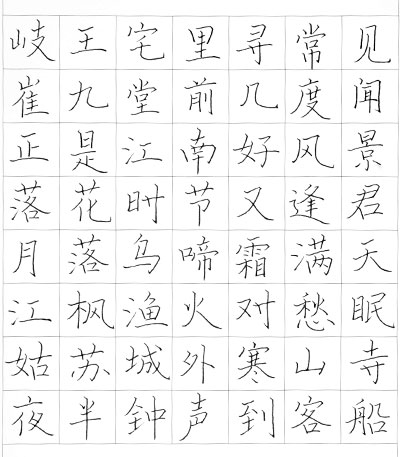 岐王宅里寻常见
崔九堂前几度闻
正是江南好风景
落花时节又逢君
月落乌啼霜满天
江枫渔火对愁眠
姑苏城外寒山寺
夜半钟声到客船